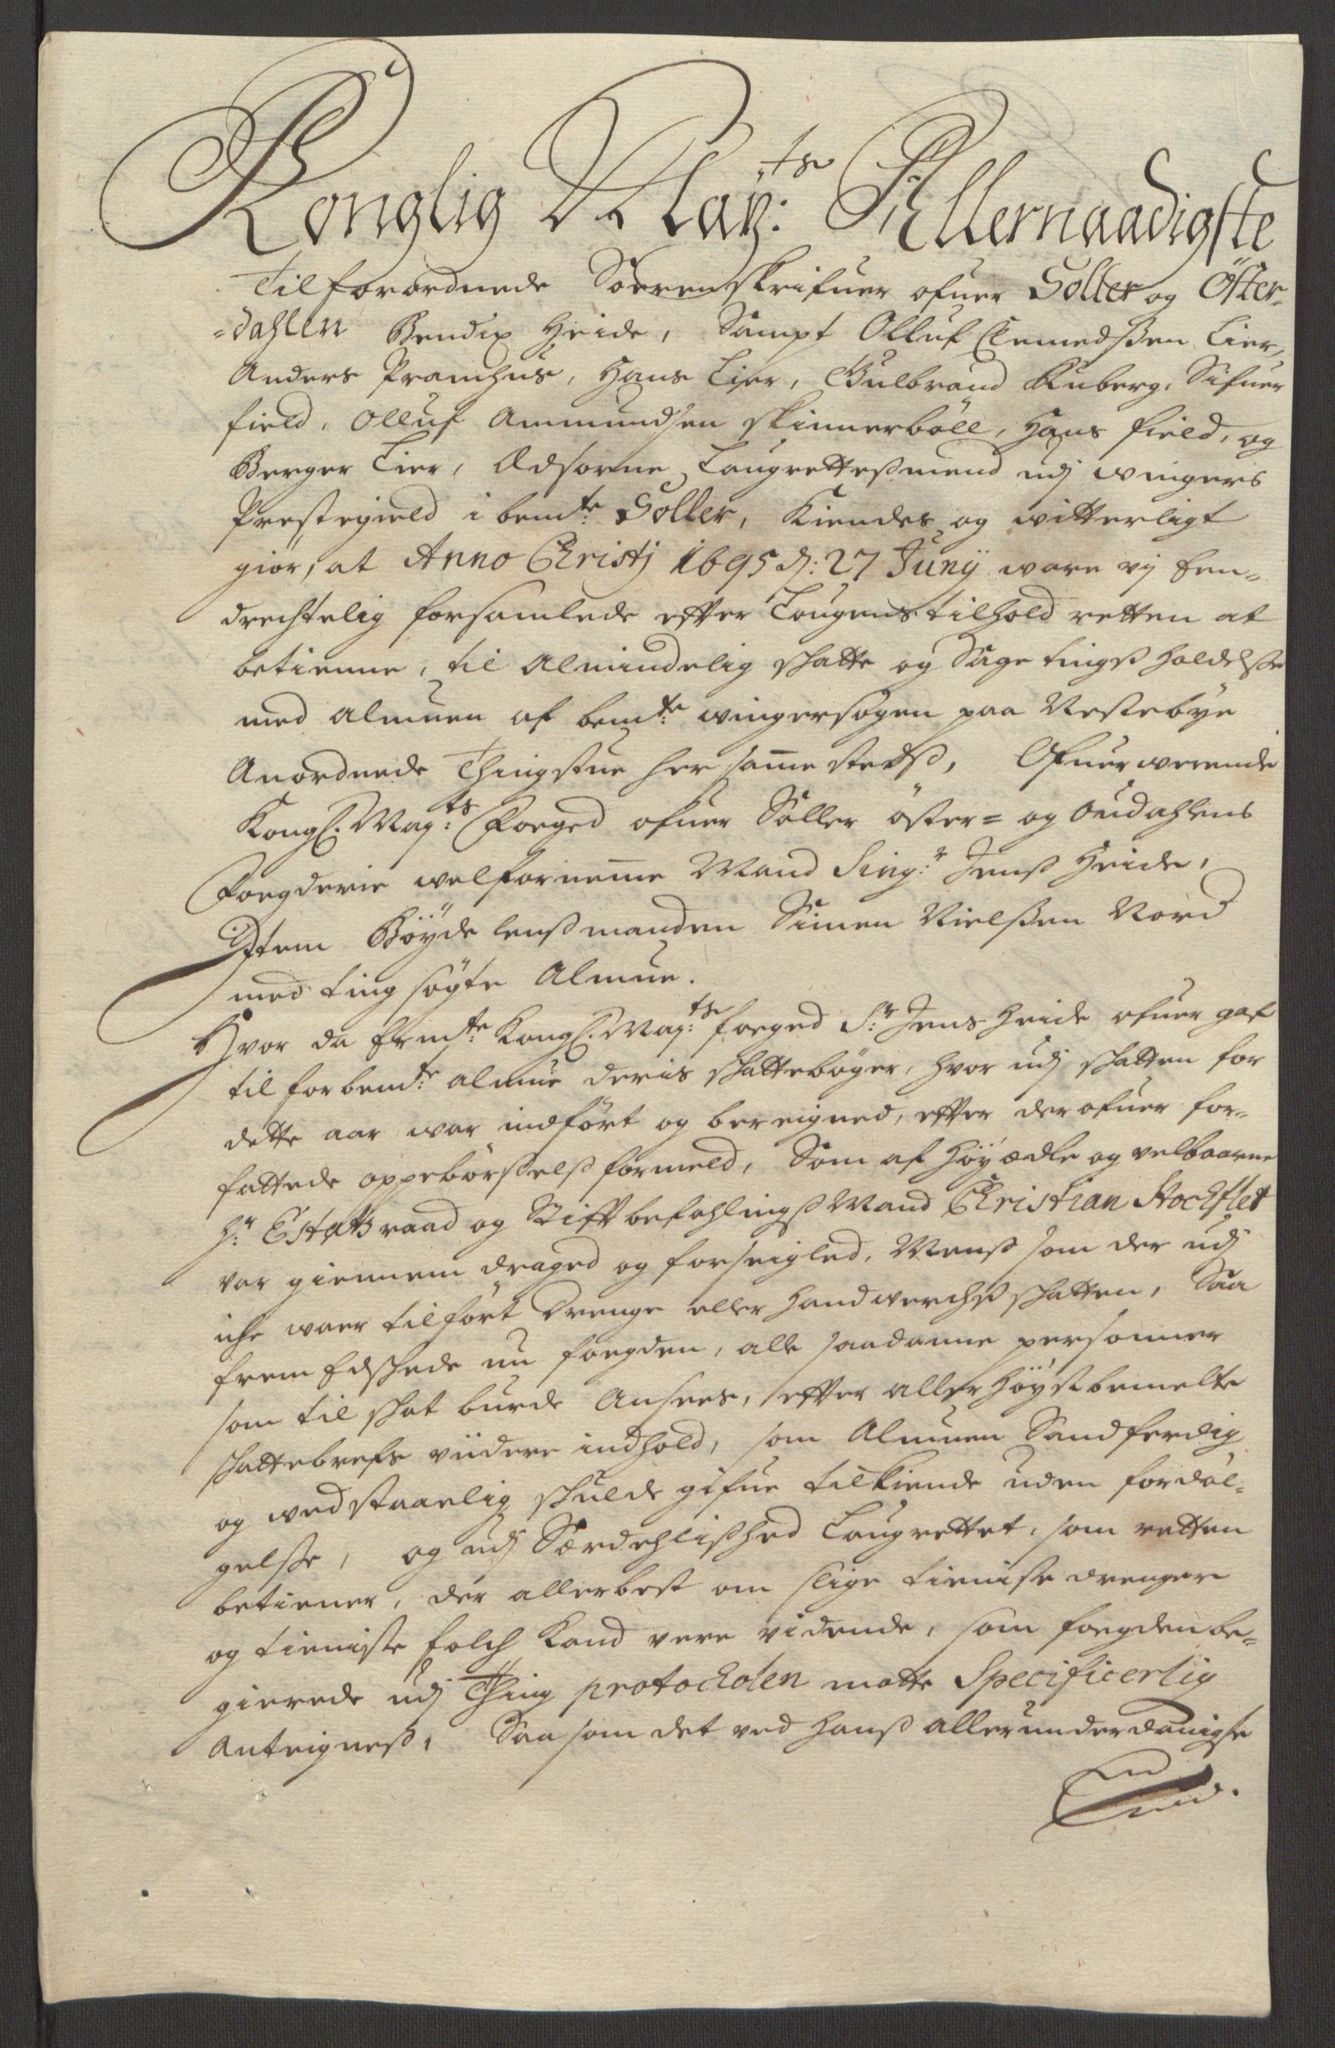 Konglig May:ts Allernaadigste
Tilforordnede Sorenskrifuer ofuer Soller og Öster-
=dahlen Bendix Heide, Sampt Olluf Clemedsßen Lier,
Anders Pramhus, Hans Lier, Gulbrand Kuberg, Sifuer
field, Olluf Ammundsen Skinnerböll, Hans field, og
Berger Lier, Edsorne Laugrettesmend udj wingers
Prestegield i bemte: Soller, Kiendes og witterligt
giør, at Anno Christj 1695 d: 27 Junij ware vj Een-
drechtelig forsamlede effter Lougens tilhold retten at
betienne, til Almindelig schatte og Sage tingß holdelße
med almuen af bemte: wingersogen paa Nestebye
Anordnede Thingstue her samme stedß, Ofuerwerende
Kongl. May:ts Foeged ofuer Soller öster= og Oudahlens
Foegderie welfornemme Mand Sing:r Jenß Heide,
Jttem Böyde lenßmanden Simen Nielßen Nord
med ting søgte Almue.
Hvor da Ermte: Kongl. May:ts foeged Sr: Jens Heide ofuer gaf
til forbemte: almue deris schattebøger, hvor udj schatten for
dette aar war indført og bereigned, effter derofuer for-
fattede oppebörßelß formeld, Som af Höyædle og velbaarne
Hr: Estatzraad og Stiftbefahlingß Mand Christian Stockflet
var giennem draged og forseigled, Menß som der udj
iche waer tilført Drenge eller Handwerchß schatten, Saa
frem Edschede nu foegden, alle saadanne personner
som til schat burde Ansees, effter allerhöystbemelte
schattebrefs viidere indhold, som Almuen Sandferdig
og wedstaaelig schulde gifue tilkiende uden fordøl-
gelße, og udj Særdehlißhed Laugrettet, som retten
betiener, der allerbest om slige tieniste drenger
og tieniste folch kand vere vidende, som foegden be-
gierede udj Thing protocholen motte Specificerlig
Anteigneß, Saasom det ved Hanß allerunderdanigste